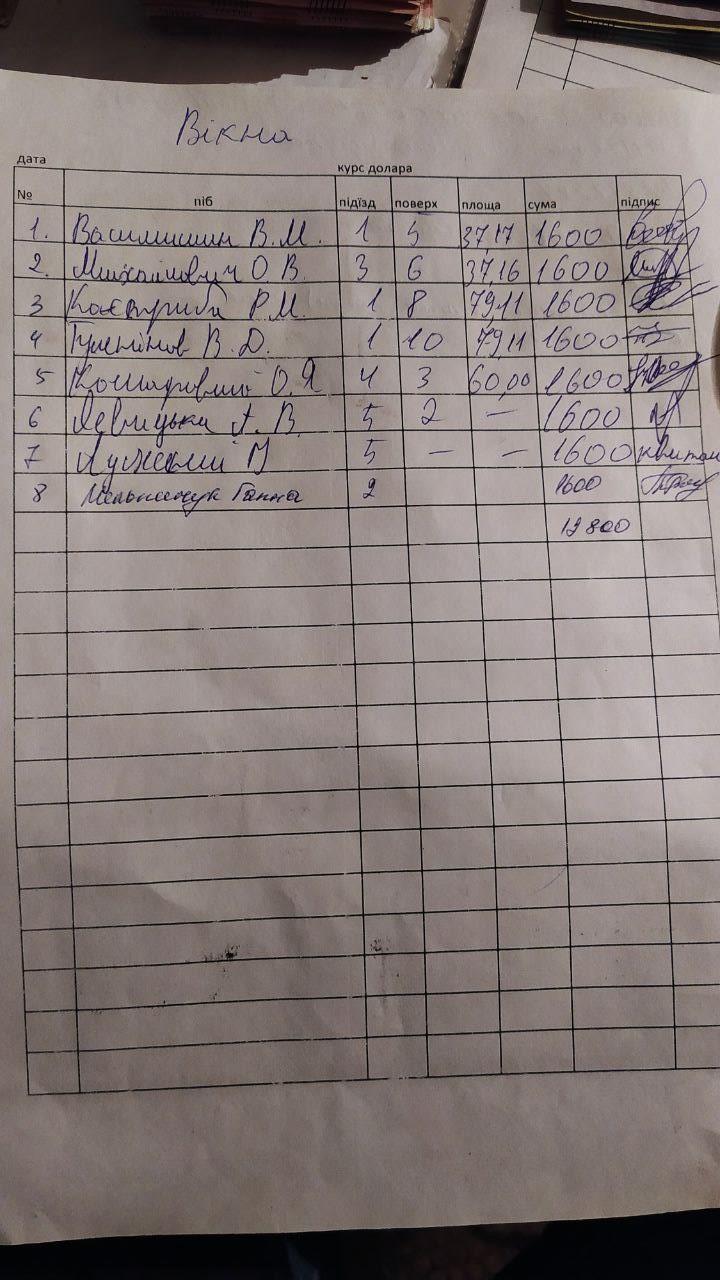 Вікна
дата курс долара
№ піб підїзд поверх площа сума підпис
1. Василишин В.М. 1 5 37,17 1600
2. Михайлович О.В. 3 6 37,16 1600
3 Р.М. 1 8 79,11 1600
4 В.Д. 1 10 79,11 1600
5 Кошаровий О.Я 4 3 60,00 1600
6 Левицька А.В. 5 2 — 1600
7 5 — — 1600
8 Мельничук Ганна 2 1600
12 800